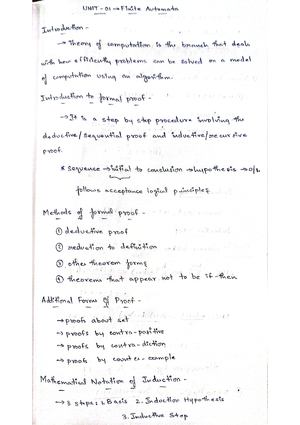 UNIT-01 → Finite Automata
Introduction -
→ Theory of computation is the branch that deals
with how efficiently problems can be solved on a model
of computation using an algorithm.
Introduction to formal proof -
→ It is a step by step procedure involving the
deductive/sequential proof and inductive/recursive
proof.
* sequence → initial to conclusion → hypothesis → o/p
follows acceptance logical principles
Methods of formal proof -
① deductive proof
② reduction to definition
③ other theorem forms
④ theorems that appear not to be if-then
Additional Forms of Proof -
→ proofs about set
→ proofs by contra-positive
→ proofs by contra-diction
→ proofs by counter-example
Mathematical Notation of Induction -
→ 3 steps: 1. Basis 2. Induction Hypothesis
3. Inductive Step